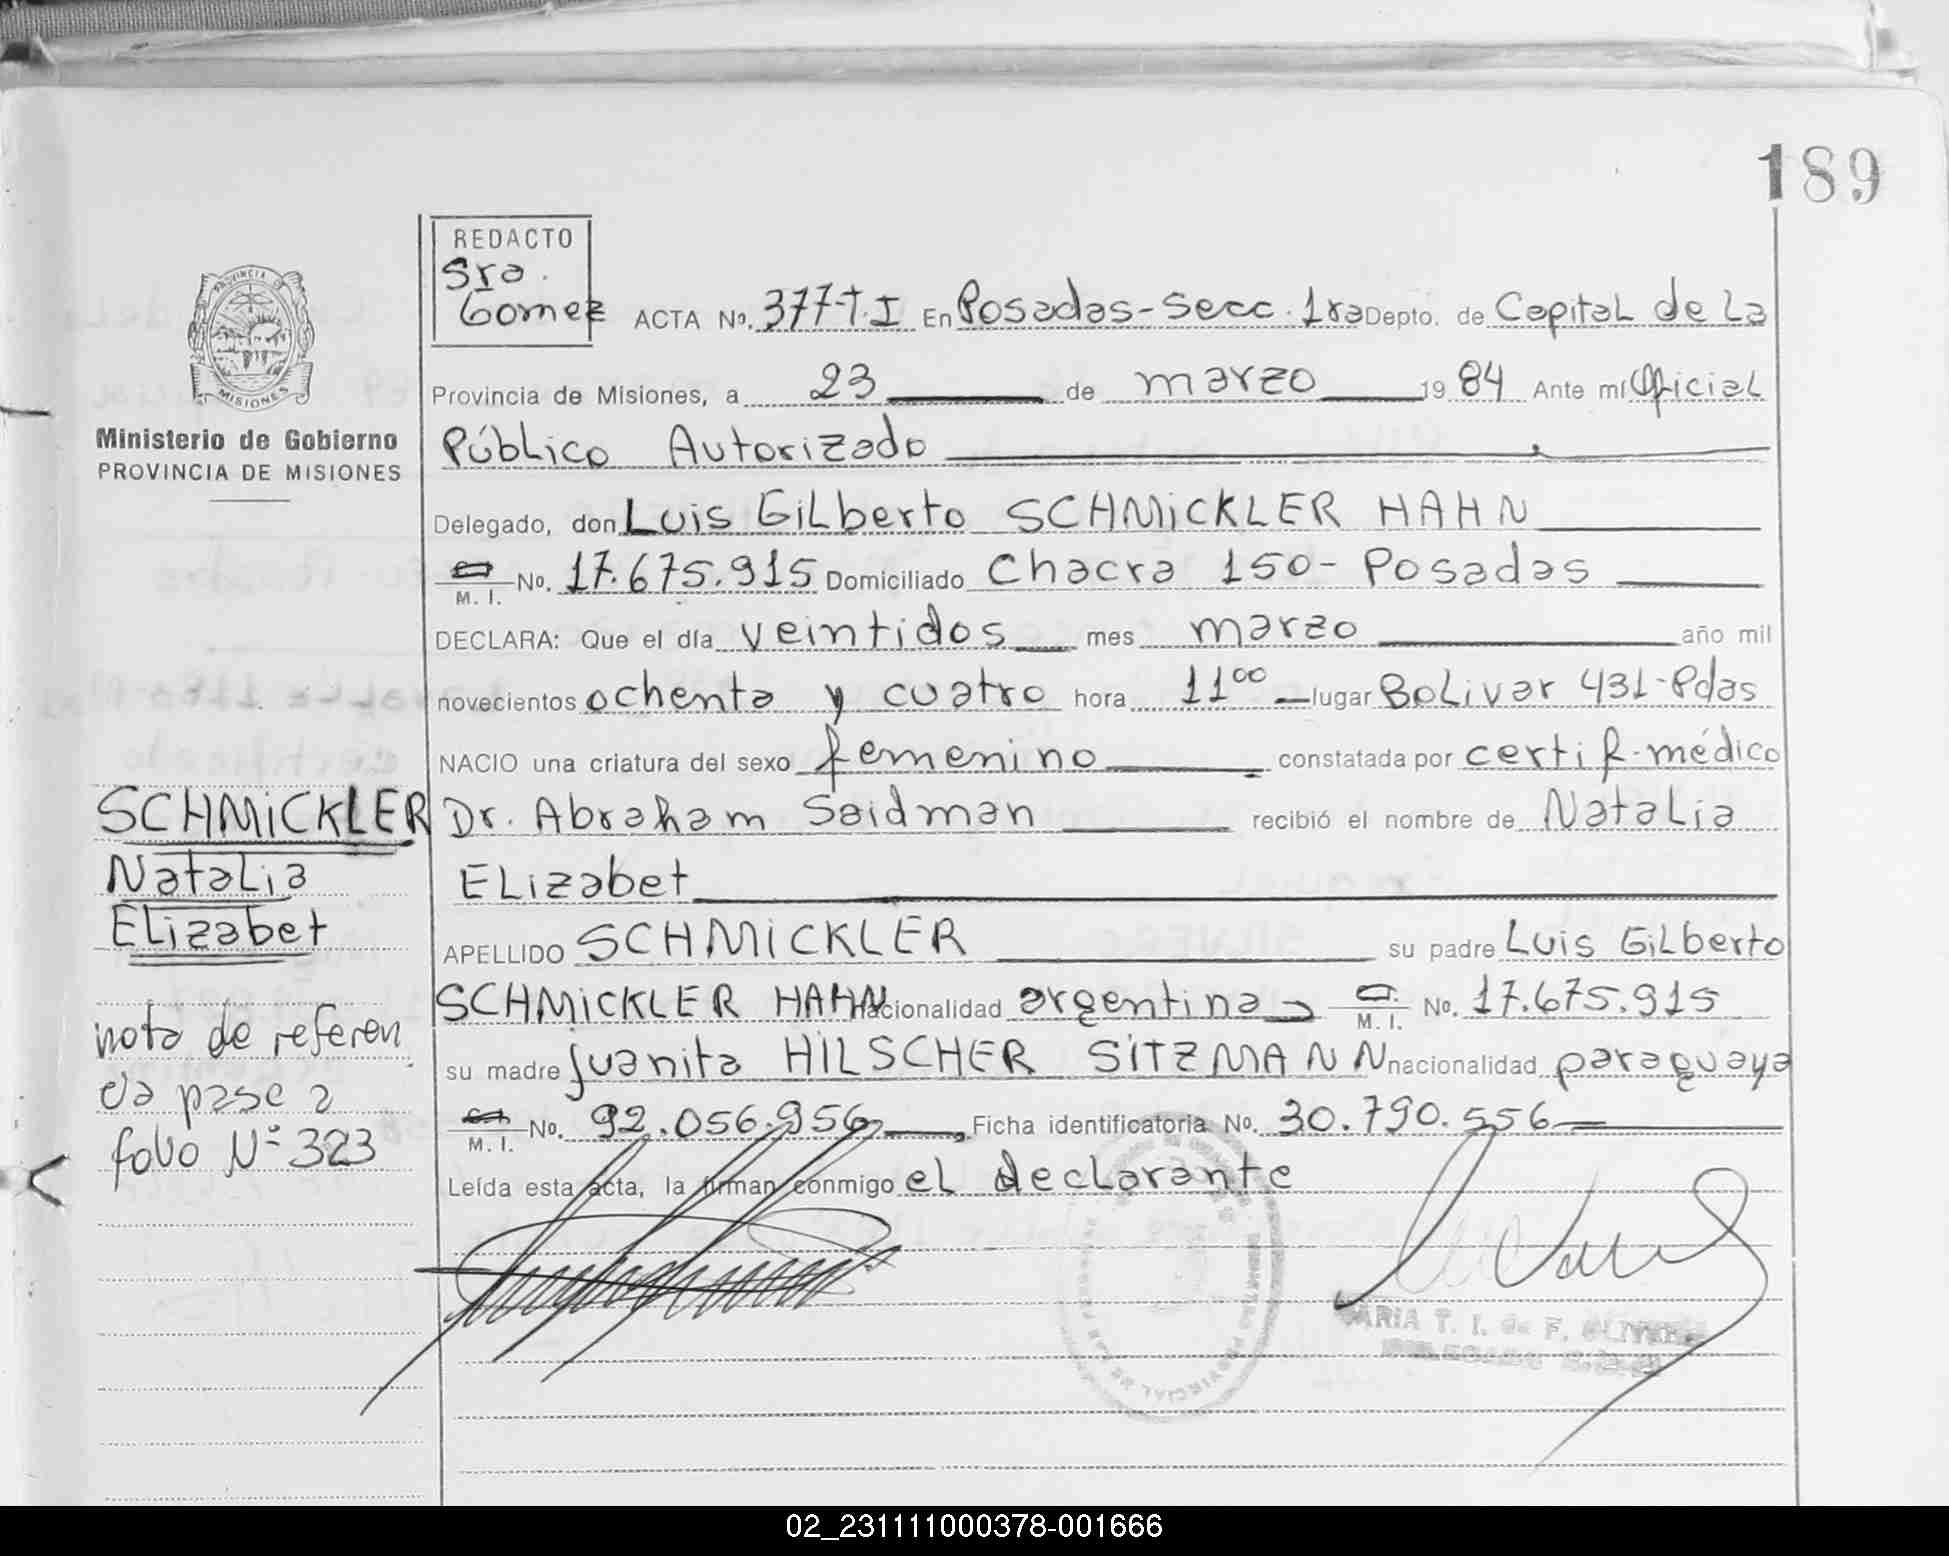 189
REDACTO
Sra.
Gomez
ACTA No. 377-T.I En Posadas-Secc. 1ra Depto. de Capital de La
Provincia de Misiones, a 23 de marzo 1984 Ante mí Oficial
Público Autorizado
Delegado, don Luis Gilberto SCHMiCKLER HAHN
M. I. No. 17.675.915 Domiciliado Chacra 150- Posadas
DECLARA: Que el día veintidos mes marzo año mil
novecientos ochenta y cuatro hora 11⁰⁰ lugar Bolivar 431-Pdas
NACIO una criatura del sexo femenino constatada por certif-médico
Dr. Abraham Saidman recibió el nombre de Natalia
Elizabet
APELLIDO SCHMiCKLER su padre Luis Gilberto
SCHMiCKLER HAHN nacionalidad argentina M. I. No. 17.675.915
su madre Juanita HiLSCHER SiTZMANN nacionalidad paraguaya
M. I. No. 92.056.956 Ficha identificatoria No. 30.790.556
Leída esta acta, la firman conmigo el declarante
PROVINCIA
MISIONES
Ministerio de Gobierno
PROVINCIA DE MISIONES
SCHMiCKLER
Natalia
Elizabet
nota de referen
cia pase a
folio Nº 323
MARIA T. I. de F.
02_231111000378-001666